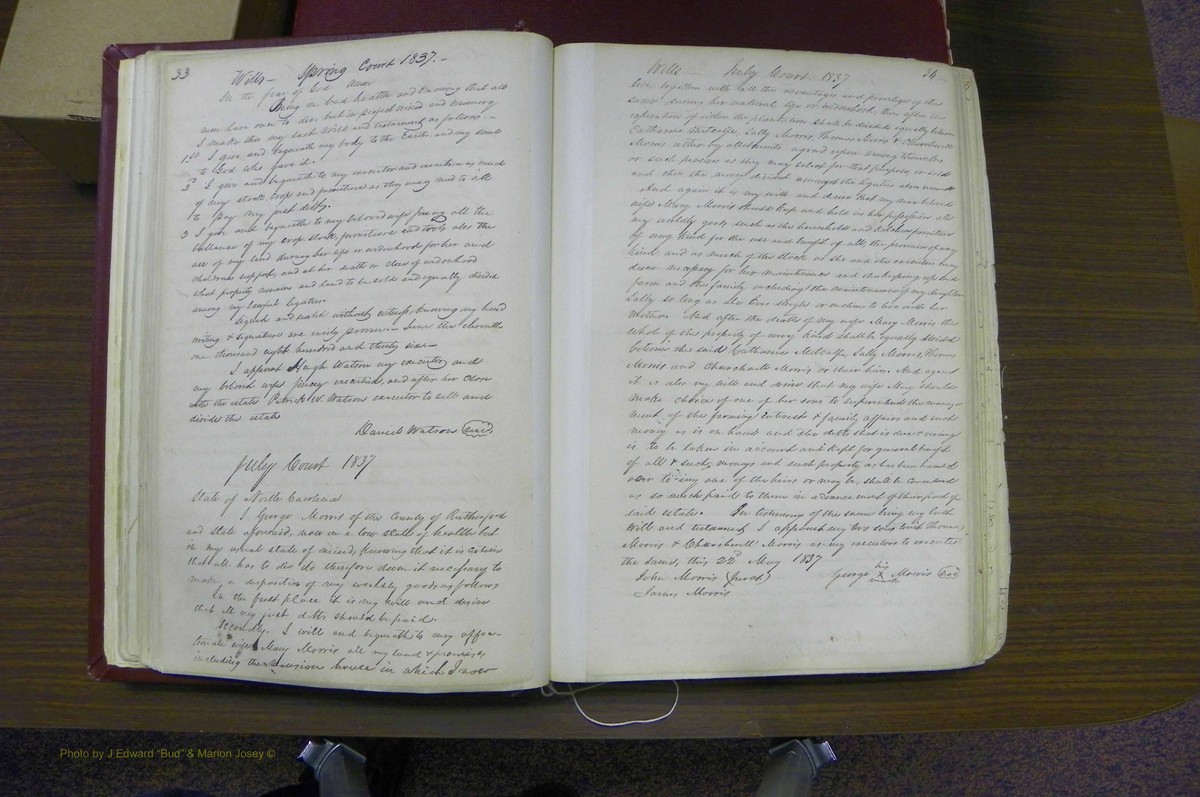 33
Wills — Spring Court 1837. —
In the fear of God Amen
Being in bad health and knowing that all
men have once to die but in perfect mind and memory
I make this my last Will and testament as follows. —
1st I give and bequeath my body to the Earth and my soul
to God who gave it.
2 I give and bequeath to my executor and executrix as much
of my stock crop and furniture as they may need to sell
to pay my just debts.
3 I give and bequeath to my beloved wife Jincey all the
ballance of my crop stock, furniture and tools also the
use of my land during her life or widowhood for her and
childrens support, and at her death or close of widowhood
what property remains and land to be sold and equally divided
among my lawful legatees.
Signed and sealed without witness, knowing my hand
writing & signature are easily proven — June the eleventh
one thousand eight hundred and thirty six —
I appoint Hugh Watson my executor and
my beloved wife Jincey executrix, and after her close
with the estate Patrick W. Watson executor to sell and
divide the estate
Daniel Watson (seal)
July Court 1837
State of North Carolina
I George Morris of the County of Rutherford
and state aforesaid, now in a low state of health but
in my usual state of mind, knowing that it is certain
that all has to die do therefore deem it necessary to
make a disposition of my worldly goods as follows
In the first place it is my will and desire
that all my just debts should be paid.
Secondly. I will and bequeath to my affec-
tionate wife Mary Morris all my land & premises
including the mansion house in which I now
Wills — July Court 1837
34
live together with all the advantages and privileges of the
same during her natural life or widowhood, then after the
expiration of either the plantation shall be divided equally between
Catharine Metcalfe, Sally Morris, Thomas Morris & Churchwell
Morris either by allotments agreed upon among themselves
or such persons as they may select for that purpose, or sold
and then the money divided amongst the legatees above named
And again it is my will and desire that my dear beloved
wife Mary Morris should keep and hold in her possession all
my worldly goods such as the household and kitchen furniture
of every kind for the use and benefit of all, the provision of every
kind, and as much of the stock as she and the executors may
deem necessary for her maintenance and the keeping up said
farm and the family including the maintenance of my daughter
Sally so long as she lives single or inclines to live with her
Mother. And after the death of my wife Mary Morris the
whole of the property of every kind shall be equally divided
between the said Catharine Metcalfe, Sally Morris, Thomas
Morris and Churchwell Morris or their heirs. And again
it is also my will and desire that my wife Mary should
make choice of one of her sons to superintend the manage
ment of the farming interest & family affairs and such
money as is on hand and the debts that is due & owing
is to be taken in account and kept for general benefit
of all & such moneys and such property as has been handed
over to any one of the heirs or may be, shall be considered
as so much paid to them in advancement of their part of
said estate. In testimony of the same being my last
Will and testament I appoint my two sons with Thomas
Morris & Churchwell Morris as my executors to execute
the same, this 22d May 1837
John Morris (Jurat)
George his X mark Morris (seal)
James Morris
Photo by J Edward "Bud" & Marion Josey ©